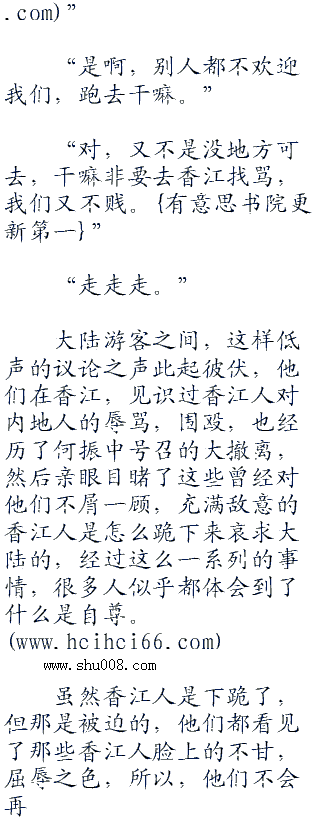 .com)”
“是啊，别人都不欢迎
我们，跑去干嘛。”
“对，又不是没地方可
去，干嘛非要去香江找骂，
我们又不贱。{有意思书院更
新第一}”
“走走走。”
大陆游客之间，这样低
声的议论之声此起彼伏，他
们在香江，见识过香江人对
内地人的辱骂，围殴，也经
历了何振中号召的大撤离，
然后亲眼目睹了这些曾经对
他们不屑一顾，充满敌意的
香江人是怎么跪下来哀求大
陆的，经过这么一系列的事
情，很多人似乎都体会到了
什么是自尊。
(www.hcihci66.com)
www.shu008.com
虽然香江人是下跪了，
但那是被迫的，他们都看见
了那些香江人脸上的不甘，
屈辱之色，所以，他们不会
再